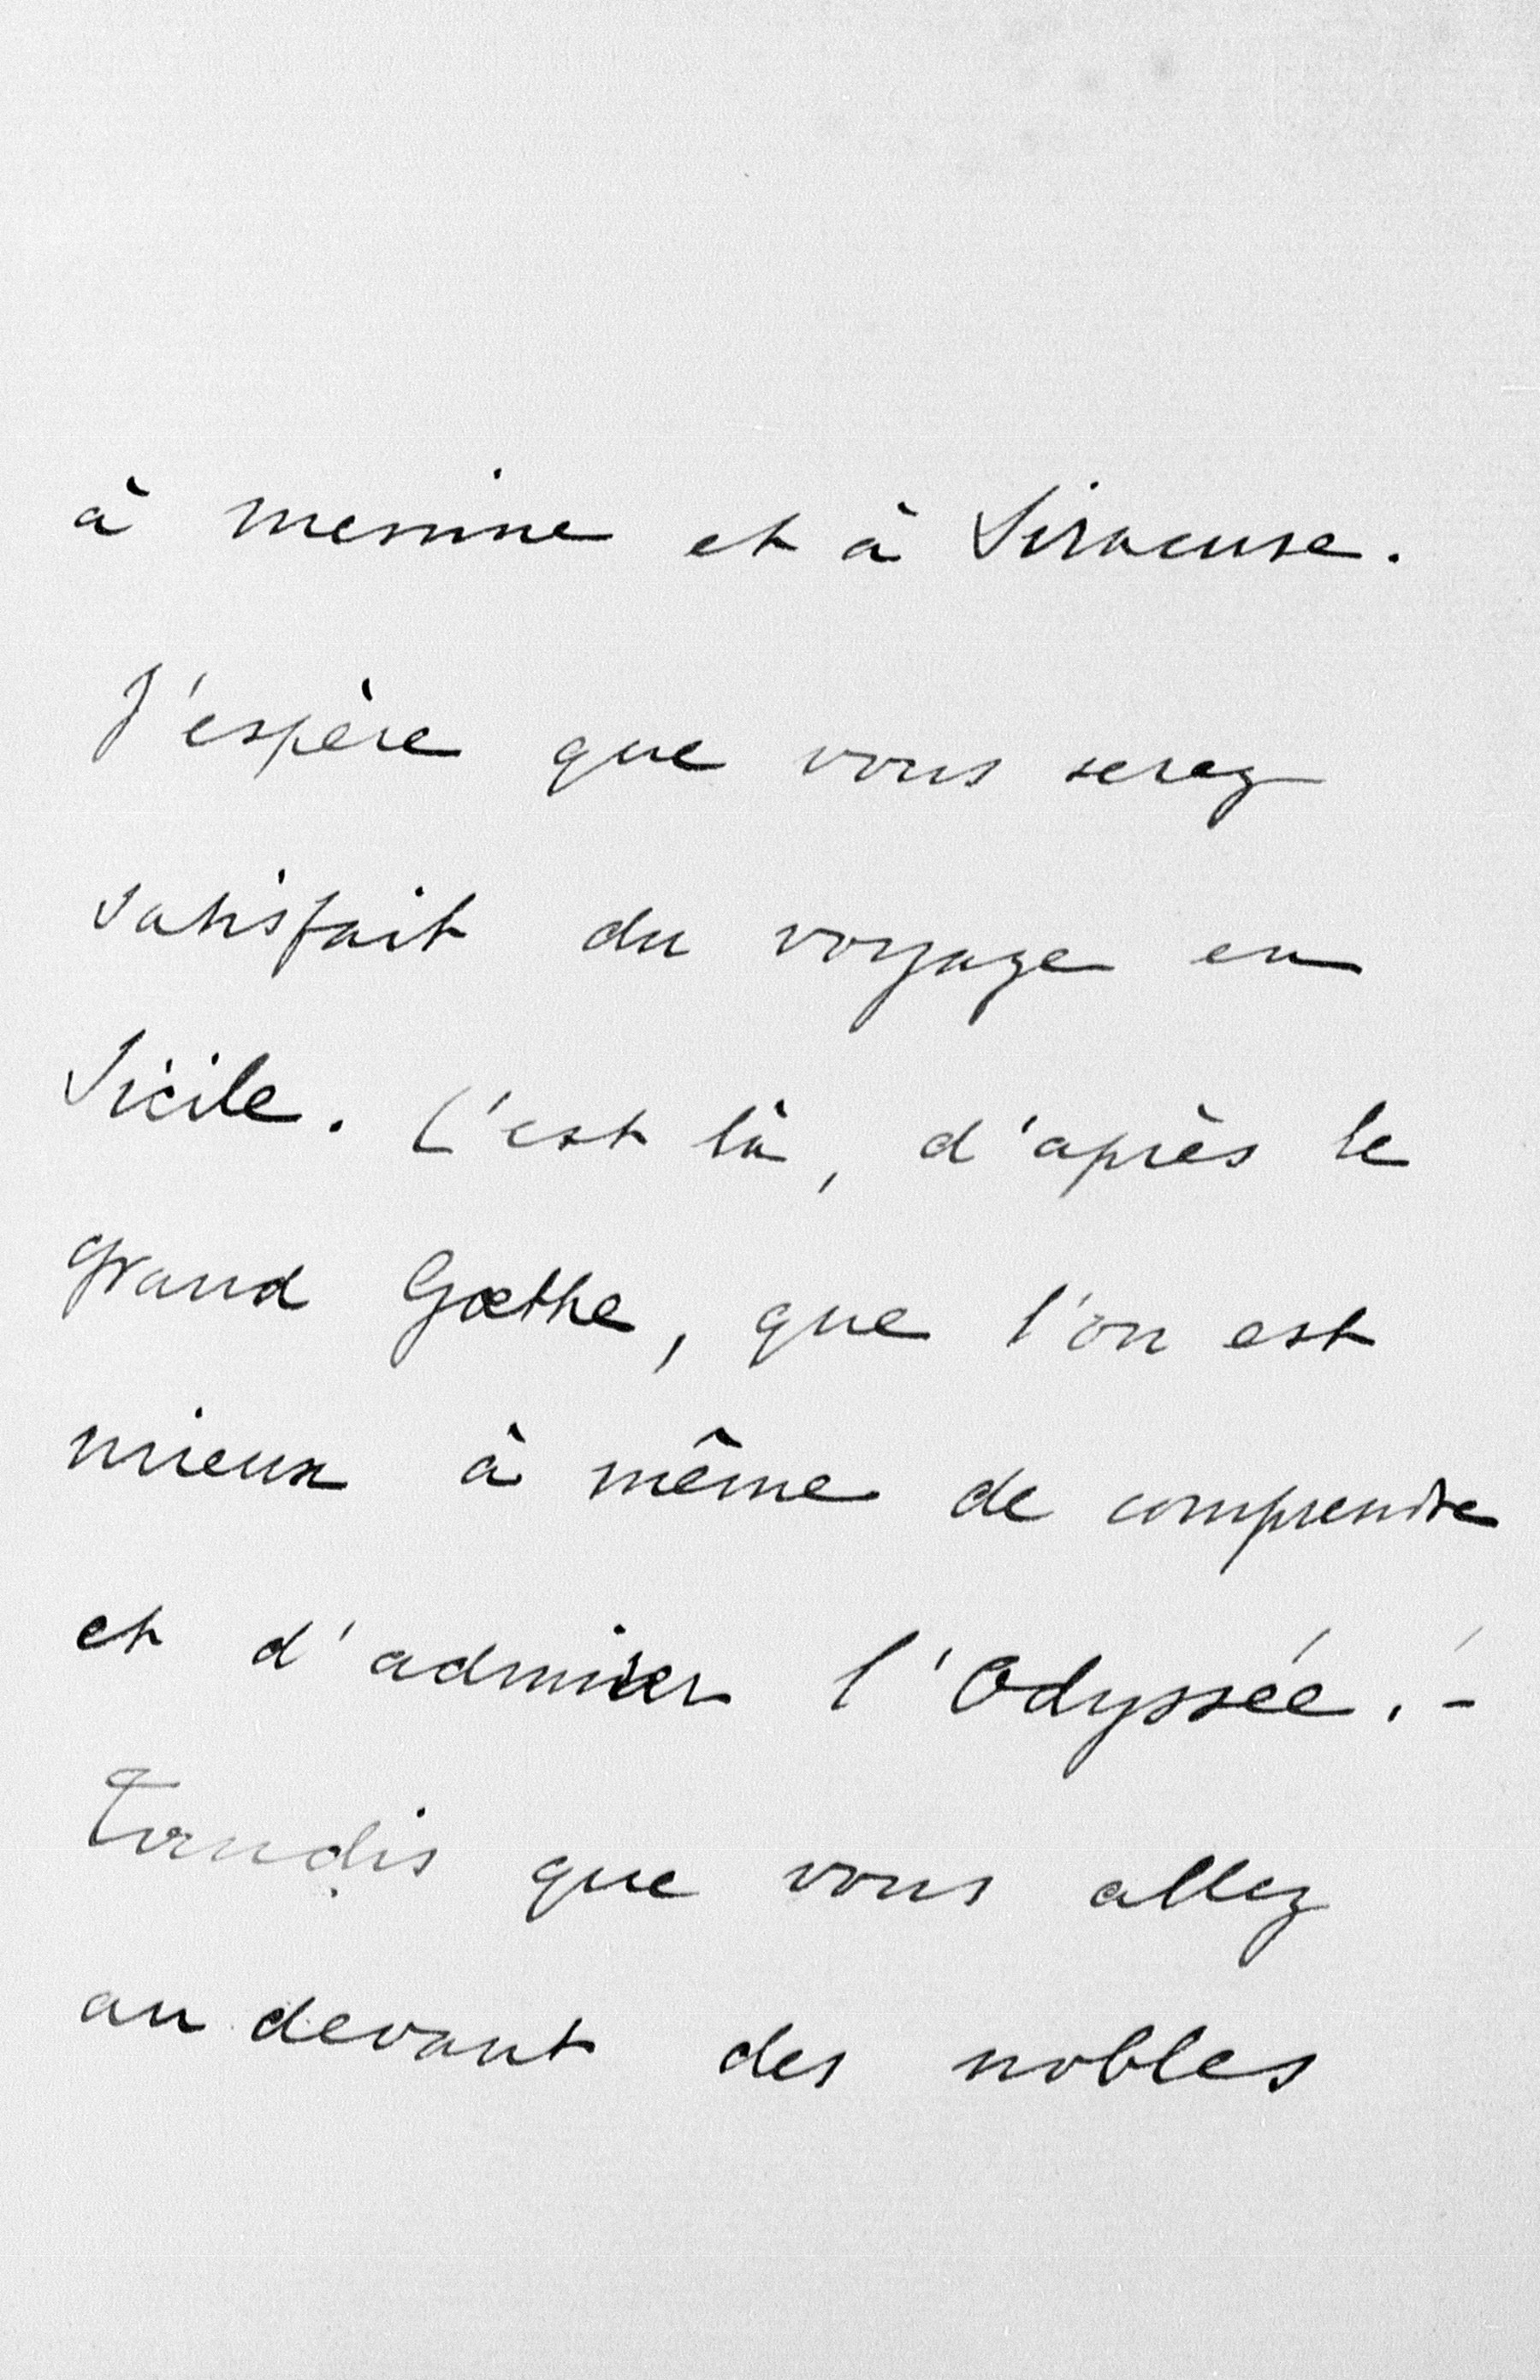 à Messine et à Siracuse.
J'espère que vous serez
satisfait du voyage en
Sicile. C'est là, d'après le
grand Gœthe, que l'on est
mieux à même de comprendre
et d'admirer l'Odyssée. -
Tandis que vous allez
au devant des nobles